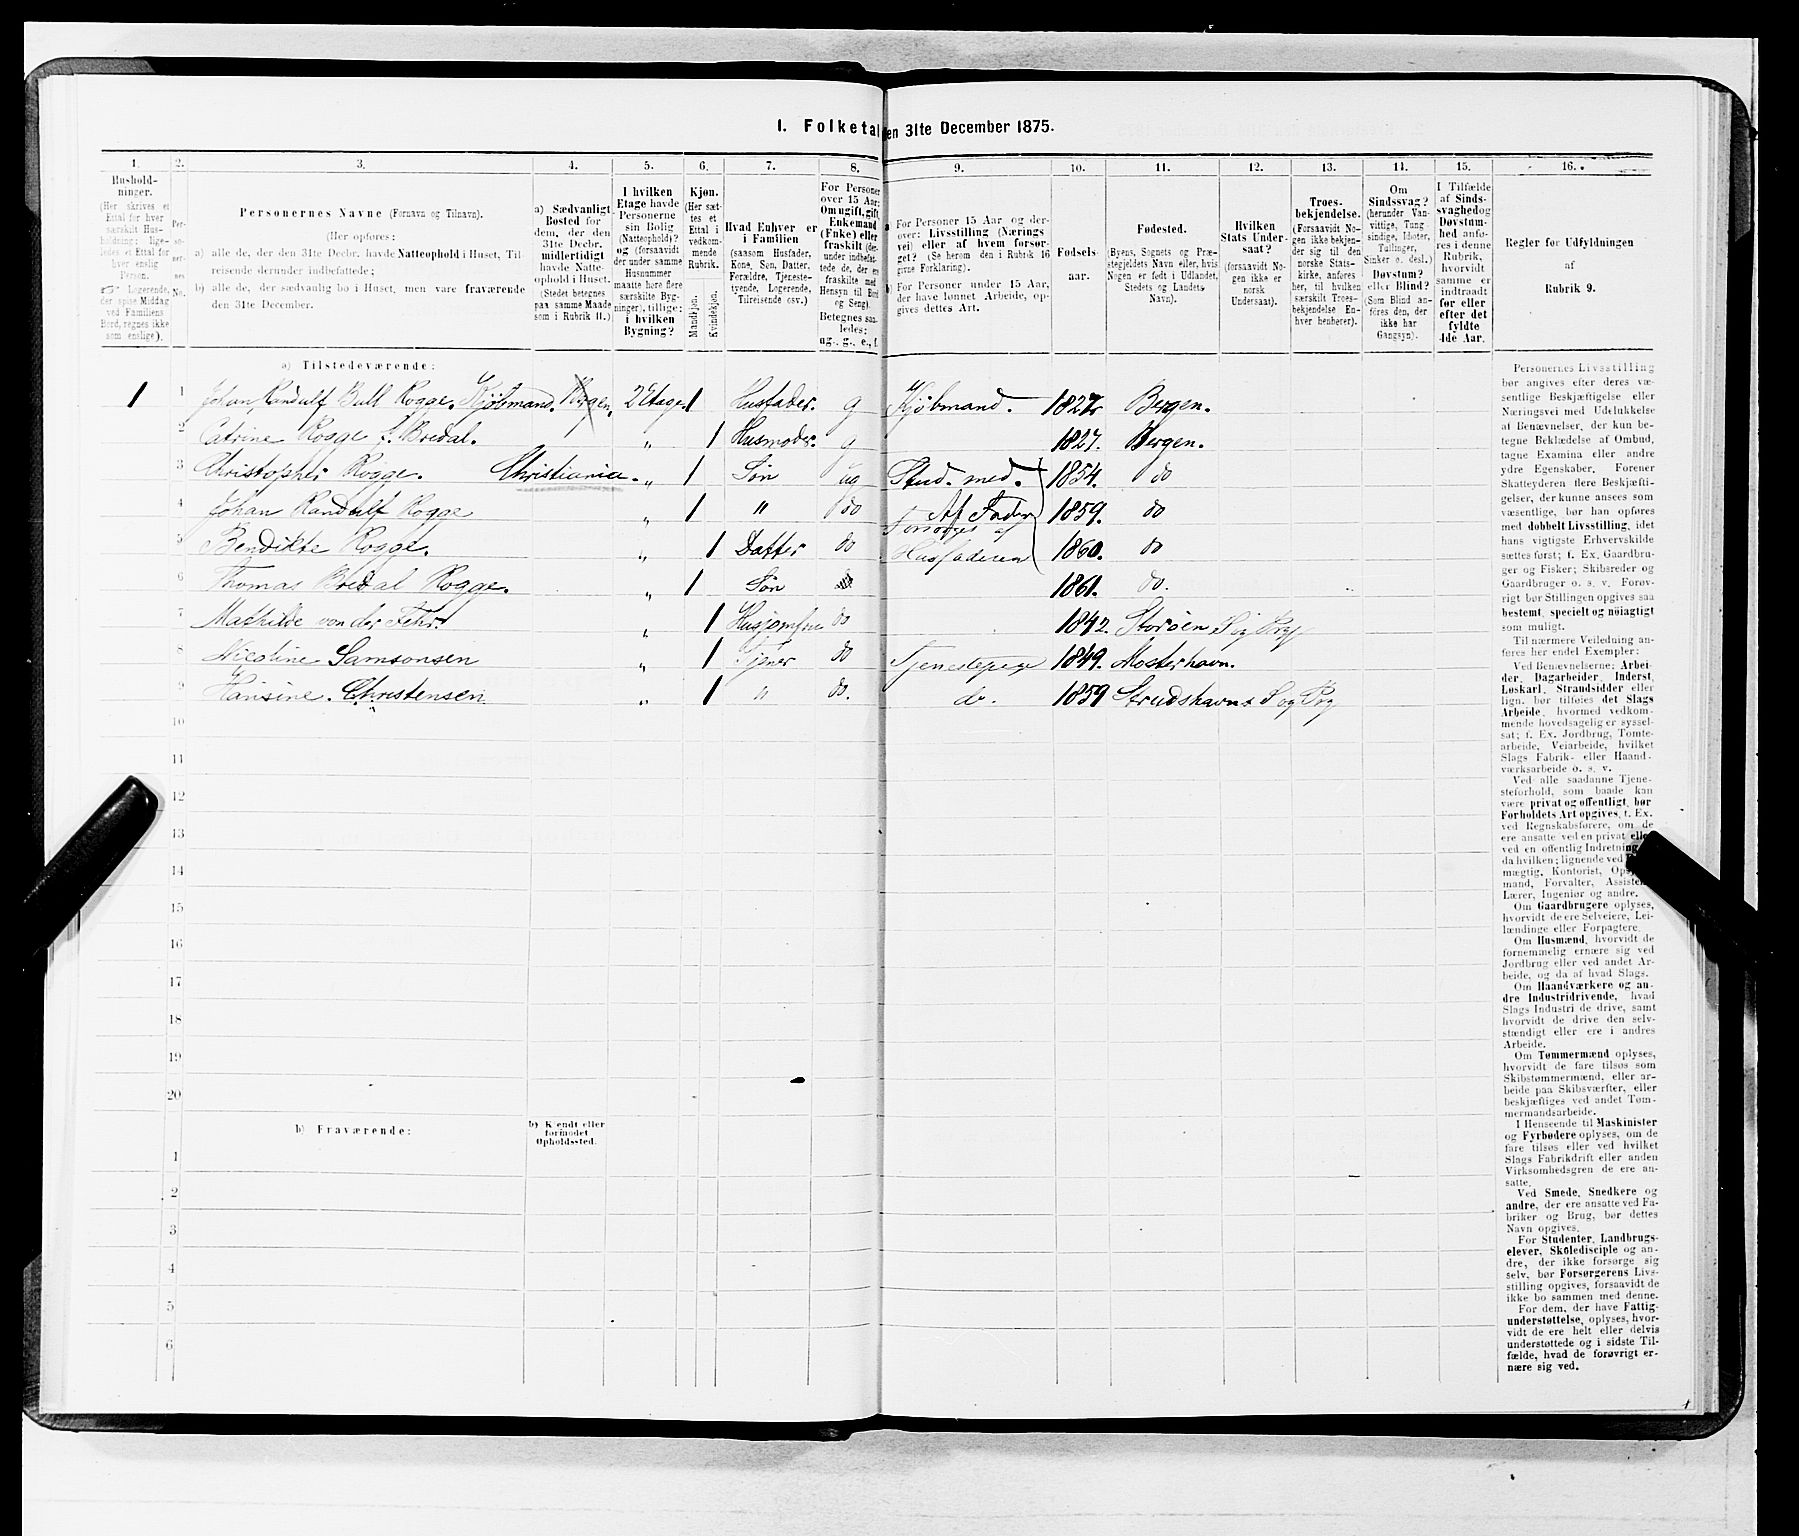 I. Folketal den 31te December 1875.
1. 2. 3. 4. 5. 6. 7. 8. 9. 10. 11. 12. 13. 14. 15. 16.
Husholdninger.
(Her skrives et
Ettal for hver
særskilt Husholdning;
ligeledes et Ettal for
hver enslig
Person.
Logerende,
der spise Middag
ved Familiens
Bord, regnes ikke
som enslige).
Personernes No.
Personernes Navne (Fornavn og Tilnavn).
(Her opføres:
a) alle de, der den 31te Decbr. havde Natteophold i Huset, Tilreisende derunder indbefattede;
b) alle de, der sædvanlig bo i Huset, men vare fraværende
den 31te December.
a) Sædvanligt
Bosted for
dem, der den
31te Decbr.
midlertidigt
havde Natteophold i Huset.
(Stedet betegnes
paa samme Maade
som i Rubrik 11.)
I hvilken
Etage havde
Personerne
sin Bolig
(Natteophold)?
og (forsaavidt
der under samme
Husnummer
maatte høre flere
særskilte Bygninger), tillige:
i hvilken
Bygning?
Kjøn.
(Her sættes et
Ettal i
vedkommende
Rubrik.
Mandkjøn.
Kvindekjøn.
Hvad Enhver er
i Familien
(saasom Husfader,
Kone, Søn, Datter,
Forældre, Tjenestetyende, Logerende,
Tilreisende osv.)
For Personer
over 15 Aar:
Om ugift, gift,
Enkemand
(Enke) eller
fraskilt (derunder indbefattede de, der er
fraskilte med
Hensyn til Bord
og Seng)
Betegnes saaledes:
ug., g., e., f.
a For Personer 15 Aar og derover: Livsstilling (Næringsvei) eller af hvem forsørget? (Se herom den i Rubrik 16
givne Forklaring).
b) For Personer under 15 Aar,
der have lønnet Arbeide, opgives dettes Art.
Fødselsaar.
Fødested.
(Byens, Sognets og Præstegjeldets Navn eller, hvis
Nogen er født i Udlandet,
Stedets og Landets
Navn).
Hvilken
Stats Undersaat?
(forsaavidt Nogen ikke er
norsk
Undersaat).
Troesbekjendelse.
(Forsaavidt Nogen ikke bekjender sig til den
norske Statskirke, anføres
her, til hvilken
særskilt Troesbekjendelse Enhver henhører).
Om
Sindssvag?
(herunder Vanvittige, Tungsindige, Idioter,
Tullinger,
Sinker o. desl.)
Døvstum?
eller Blind?
(Som Blind anføres den, der
ikke har
Gangsyn).
I Tilfælde
af Sindssvaghed og
Døvstumhed anføres i denne
Rubrik,
hvorvidt
samme er
indtraadt
før eller
efter det
fyldte
4de Aar.
Regler for Udfyldningen
af
Rubrik 9.
a) Tilstedeværende:
1 1 Johan Randulf Bull Rogge. Kjøbmand. Bergen 2 Etage 1 Husfader. g Kjøbmand. 1827 Bergen.
2 Catrine Rogge f. Bredal. " 1 Husmoder. g 1827. Bergen.
3 Christopher Rogge. Christiania. " 1 Søn ug Stud. med. 1854. do
4 Johan Randulf Rogge " 1 " do Af Fader 1859. do
5 Bendikte Rogge. " 1 Datter do Forsørges af Husfaderen 1860. do
6 Thomas Bredal Rogge. " 1 Søn 1861. do.
7 Mathilde von der Fehr. " 1 Husjomfru do 1842. Storøen S og Prgj
8 Nicoline Samsonsen " 1 Tjener do Tjenestepige 1849. Mosterhavn.
9 Hansine Christensen " 1 " do. do. 1859 Strudshavns S og Prg
10
11
12
13
14
15
16
17
18
19
20
b) Fraværende:
b) Kjendt eller
formodet
Opholdssted.
1
2
3
4
5
6
Personernes Livsstilling
bør angives efter deres væsentlige Beskjæftigelse eller
Næringsvei med Udelukkelse
af Benævnelser, der kun betegne Beklædelse af Ombud,
tagne Examina eller andre
ydre Egenskaber. Forener
Skatteyderen flere Beskjæftigelser, der kunne ansees som
væsentlige, bør han opføres
med dobbelt Livsstilling, idet
hans vigtigste Erhvervskilde
sættes først; f. Ex. Gaardbruger og Fisker; Skibsreder og
Gaardbruger o. s. v. Forøvrigt bør Stillingen opgives saa
bestemt, specielt og nøiagtigt
som muligt.
Til nærmere Veiledning anføres her endel Exempler:
Ved Benævnelserne: Arbeider, Dagarbeider, Inderst,
Løskarl, Strandsidder eller
lign. bør tilføies det Slags
Arbeide, hvormed vedkommende hovedsagelig er sysselsat; f. Ex. Jordbrug, Tomtearbeide, Veiarbeide, hvilket
Slags Fabrik- eller Haandværksarbeide o. s. v.
Ved alle saadanne Tjenesteforhold, som baade kan
være privat og offentligt, bør
Forholdets Art opgives, f. Ex.
ved Regnskabsførere, om de
ere ansatte ved en privat eller
ved en offentlig Indretning og
da hvilken; lignende ved
mægtig, Kontorist, Opsynsmand, Forvalter, Assistent,
Lærer, Ingeniør og andre.
Om Gaardbrugere oplyses,
hvorvidt de ere Selveiere, Leilændinge eller Forpagtere.
Om Husmænd, hvorvidt de
fornemmelig ernære sig ved
Jordbrug eller ved andet Arbeide, og da af hvad Slags.
Om Haandværkere og andre Industridrivende, hvad
Slags Industri de drive, samt
hvorvidt de drive den selvstændigt eller ere i andres
Arbeide.
Om Tømmermænd oplyses,
hvorvidt de fare tilsøs som
Skibstømmermænd, eller arbeide paa Skibsværfter, eller
beskjæftiges ved andet Tømmermandsarbeide.
I Henseende til Maskinister
og Fyrbødere oplyses, om de
fare tilsøs eller ved hvilket
Slags Fabrikdrift eller anden
Virksomhedsgren de ere ansatte.
Ved Smede, Snedkere og
andre, der ere ansatte ved Fabriker og Brug, bør dettes
Navn opgives.
For Studenter, Landbrugselever, Skoledisciple og andre, der ikke forsørge sig
selv, bør Forsørgerens Livsstilling opgives, forsaavidt de
ikke bo sammen med denne.
For dem, der have Fattigunderstøttelse, oplyses, hvorvidt de ere helt eller delvis
understøttede og i sidste Tilfælde, hvad de forøvrigt ernære sig ved.